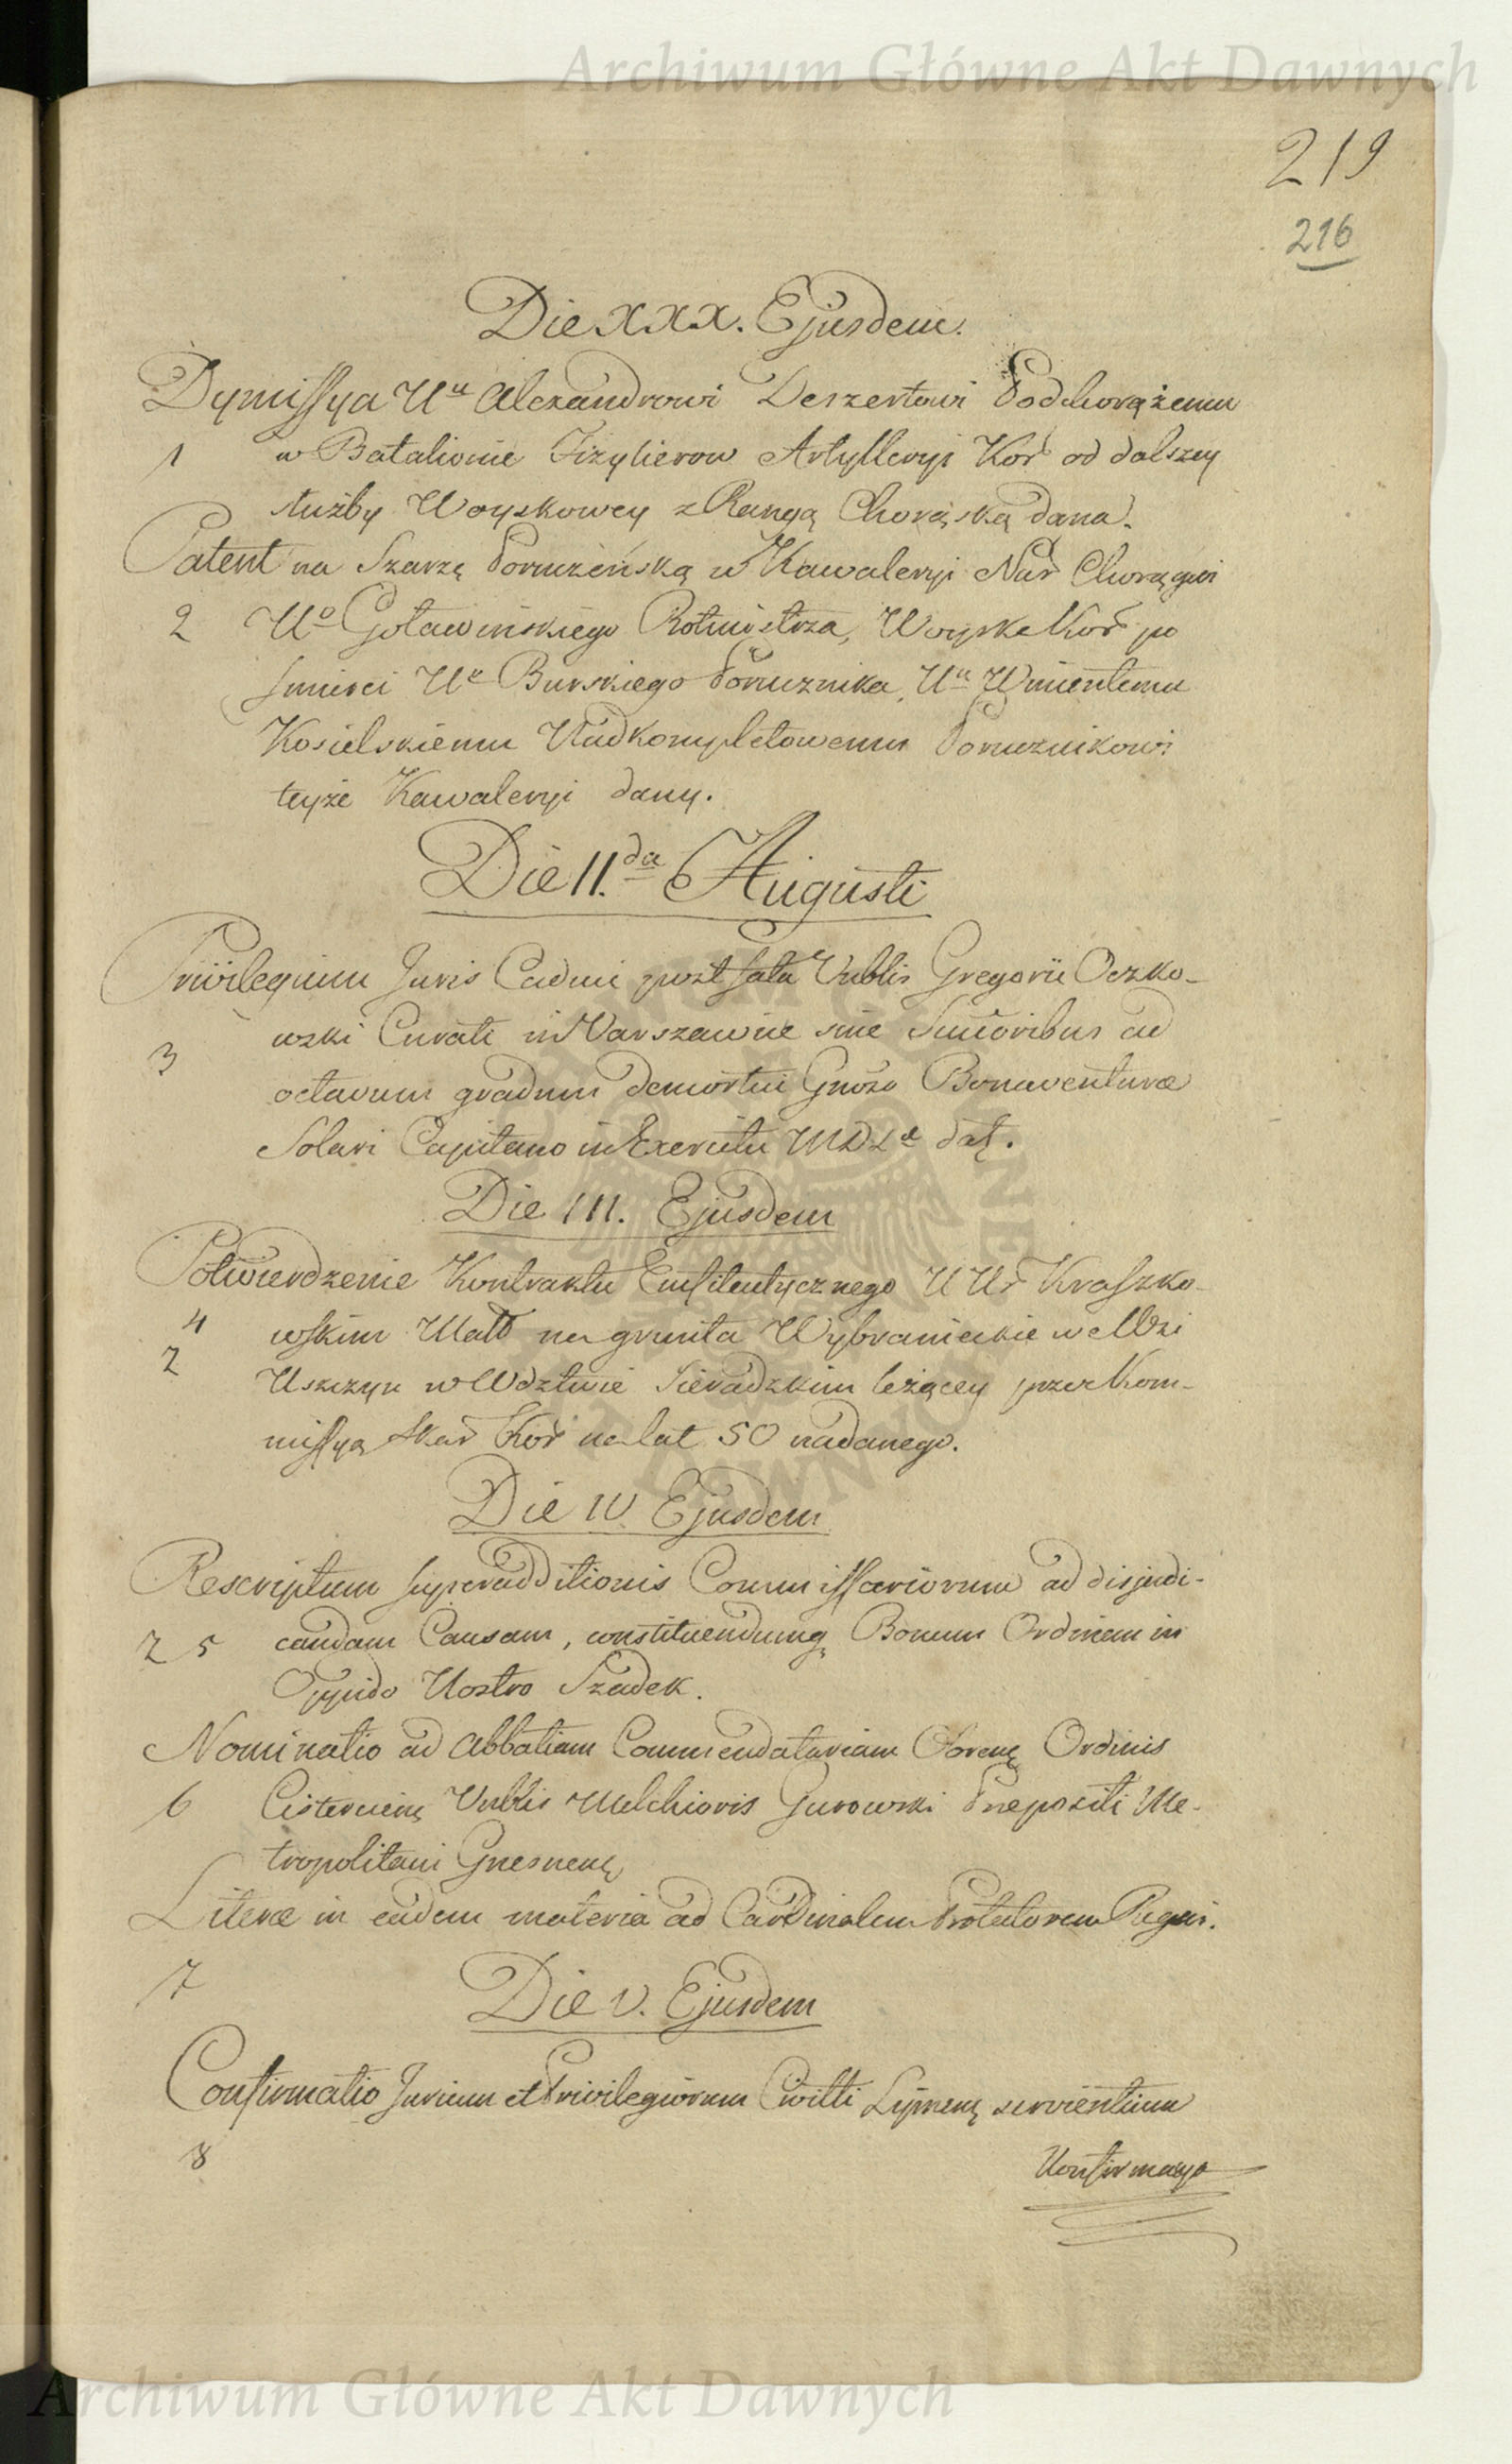 Archiwum Główne Akt Dawnych
219
216
Die XXX. Ejusdem.
Dymissya Uu Alexandrowi Deszertowi Podchorążemu
1 w Batalionie Fizylierow Artylleryi Kor od dalszey
służby Woyskowey z Rangą Chorąską dana.
Patent na Szarżę Poruczńską w Kawaleryi Nar Chorągwi
2 Uo Goławinskiego Rotmistrza, Woyska Kor po
smierci Uo Burskiego Porucznika, Uu Wincentemu
Kosielskiemu Nadkompletowemu Porucznikowi
teyże Kawaleryi dany.
Die II.da Augusti
Privilegium Juris Caduci post fata Vnblis Gregorii Oczko-
3 wski Curati in Warszawice sine Succoribus ad
octavum gradum demortui Gnoso Bonaventuræ
Solari Capitaneo in Exercitu MDL dat.
Die III. Ejusdem
Potwierdzenie Kontraktu Emfiteutycznego UUr Kraszko-
4 wskim Małż na grunta Wybranieckie we Wsi
2 Uszczyn w Wdztwie Sieradzkim leżącey przez Kom-
missyą Skar Kor na lat 50 nadanego.
Die IV. Ejusdem
Rescriptum superadditionis Commissariorum ad disjudi-
2 5 candam Causam, constituendumq Bonum Ordinem in
Oppido Nostro Szadek.
Nominatio ad Abbatiam Commendatariam Obrenę Ordinis
6 Cisterciens Vnblis Melchioris Gurowski Præpositi Me-
tropolitani Gnesnens
Literæ in eadem materia ad Cardinalem Protectorem Regni.
7
Die V. Ejusdem
Confirmatio Jurium et Privilegiorum Civitti Lipnens servientium
8
Konfirmacya
Archiwum Główne Akt Dawnych